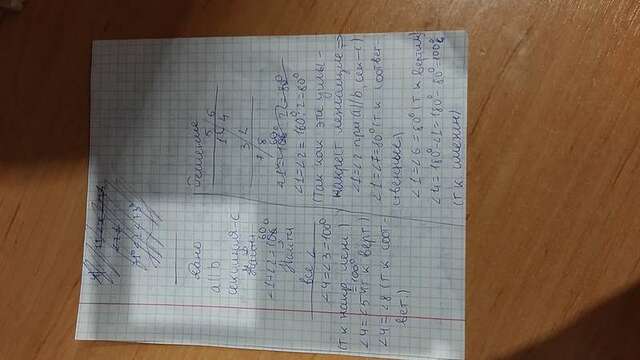 Дано
a||b
секущая-c
Найти
∠1+∠2=160°
Найти
все ∠
∠4=∠3=100°
(т к накр. лежс.)
∠4=∠5=100°(т к верт)
∠4=∠8 (т к. соот-
вет.)
Решение
5/6
1 4
3/2
7/8
∠1=∠2=160°:2=80°
(Так как эти углы-
накрест лежащие ⇒
∠1=∠2 при a||b, сек-c)
∠1=∠7=80°(т к соответ-
ственные)
∠1=∠6=80°(т к вертик)
∠4=180°-∠1=180°-80°=100°
(т к. смежн)